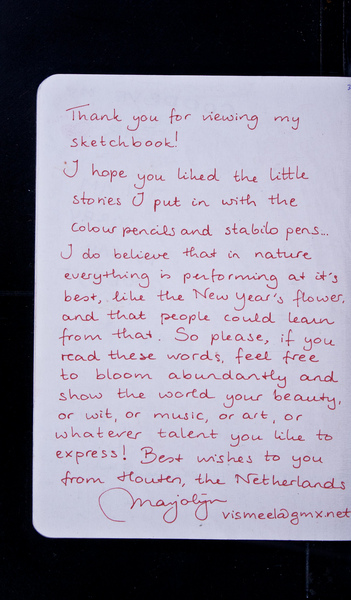 Thank you for viewing my
sketchbook!
I hope you liked the little
stories I put in with the
colour pencils and stabilo pens...
I do believe that in nature
everything is performing at it's
best, like the New Year's flower,
and that people could learn
from that. So please, if you
read these words, feel free
to bloom abundantly and
show the world your beauty,
or wit, or music, or art, or
whatever talent you like to
express! Best wishes to you
from Houten, the Netherlands
Marjolijn
vismeel@gmx.net